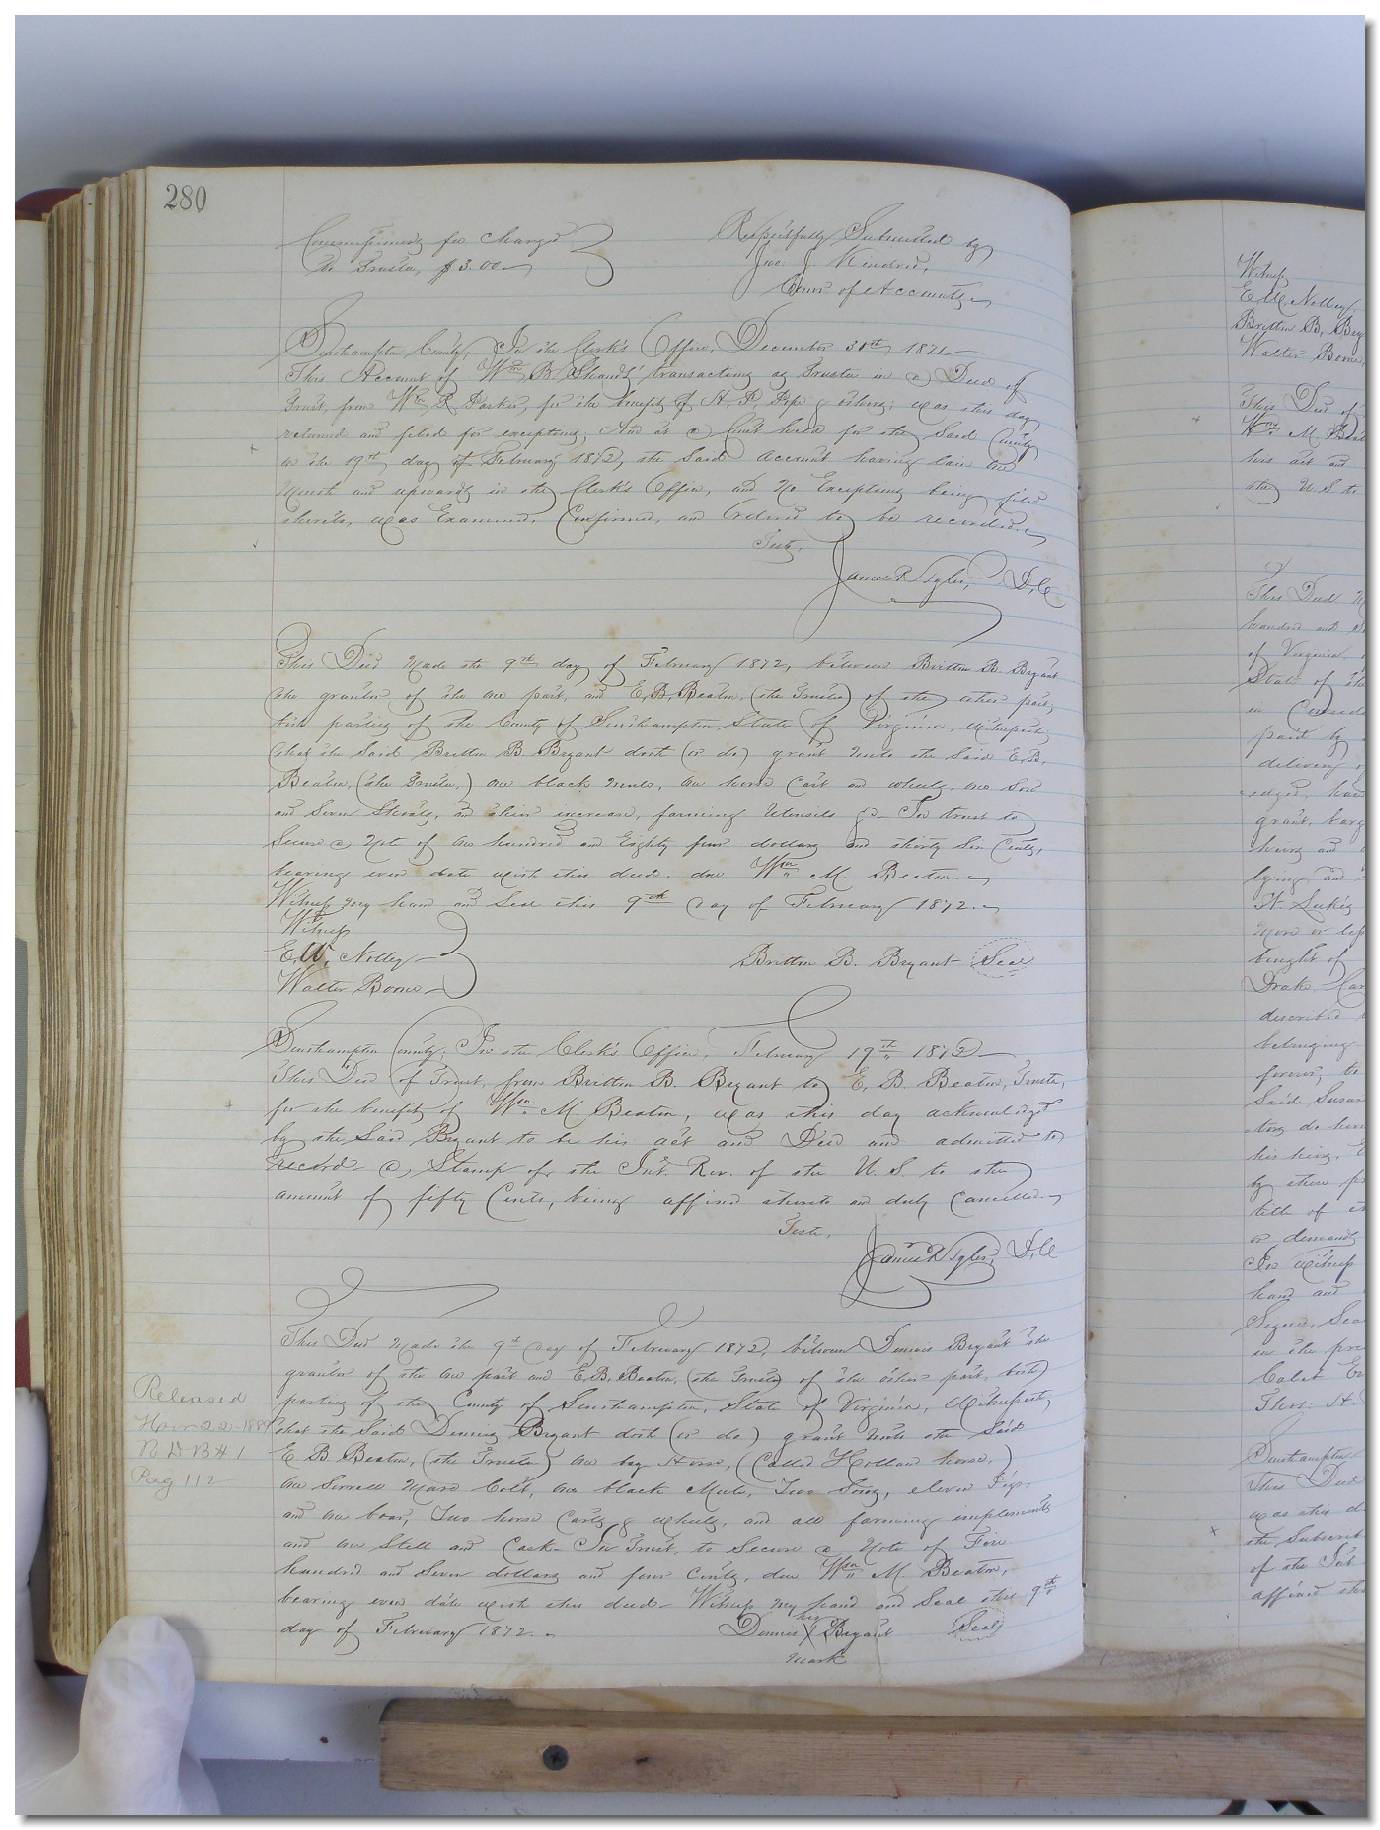 280
Commissioners fee charged
to Trustee, $3.00
Respectfully Submitted by
Jno. J. Kindred,
Comr of Accounts
Southampton County, In the Clerk's Office, December 30th 1871
This Account of Wm B. Shands transacting as Trustee in a Deed of
Trust, from Wm R. Parker, for the benefit of A. P. Pope & others, was this day
returned and filed for exceptions, And at a Court held for the Said County
on the 19th day of February 1872, the Said Account having lain one
Month and upwards in the Clerk's Office, and No Exceptions being filed
thereto, was Examined, Confirmed, and Ordered to be recorded.
Teste,
James R Tyler, D.C
This Deed Made the 9th day of February 1872, between Britton B. Bryant
the grantor of the one part, and E.B. Beaton, (the Trustee) of the other part,
both parties of the County of Southampton, State of Virginia, Witnesseth,
that the Said Britton B. Bryant doth (or do) grant unto the Said E.B.
Beaton, (the Trustee,) one black mule, one horse cart and wheels, one Sow
and Seven Shoats, and their increase, farming Utensils &c. In trust to
Secure a Note of one hundred and Eighty four dollars and thirty Six Cents,
bearing even date with this deed. due Wm M Beaton.
Witness my hand and Seal this 9th day of February 1872.
Witness
E.W. Nolley
Walter Boone
Britton B. Bryant Seal
Southampton County, In the Clerk's Office, February 19th 1872
This Deed of Trust, from Britton B. Bryant to E. B. Beaton, Trustee,
for the benefit of Wm. M Beaton, was this day acknowledged
by the Said Bryant to be his act and Deed and admitted to
record a Stamp of the Int. Rev. of the U.S. to the
amount of fifty Cents, being affixed thereto and duly Cancelled.
Teste,
James R Tyler, D.C
This Deed Made the 9th day of February 1872, between Dennis Bryant the
grantor of the one part and E.B. Beaton, (the Trustee) of the other part, both
parties of the County of Southampton, State of Virginia, Witnesseth,
that the Said Dennis Bryant doth (or do) grant Unto the Said
E B Beaton, (the Trustee) one bay Horse, (Called Holland horse,)
one Sorrell Mare Colt, one black Mule, Two Sows, eleven Pigs
and one boar, Two horse Carts & wheels, and all farming implements
and one Still and Cask. In Trust, to Secure a Note of Five
hundred and Seven dollars and four Cents, due Wm M Beaton,
bearing even date with this deed. Witness my hand and Seal this 9th
day of February 1872.
his
Dennis X Bryant Seal
mark
Released
22-1889
R D B # 1
Pag 112
Witness
E.W. Nolley
Britton B. Bry
Walter Boone
This Deed of
Wm. M. Beat
his act and
the U.S. to
This Deed M
hundred and
of Virginia
State of the
in Conside
paid by
delivery
edged, ha
grant, barg
heirs and
lying and
St. Luke's
More or less
bought of
Drake
described
belonging
forever, to
Said Susan
his heirs,
by these pr
title of
or demands
In Witness
hand and
Signed, Sea
in the pre
Thos. H
Southampton
This Deed
was this d
the Subscrib
of the Int
affixed the